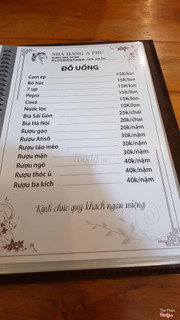 NHÀ HÀNG A PHỦ
ĐỒ UỐNG
Cam ép 15K/lon
Bò húc 15K/lon
7 up 15K/lon
Pepsi 15K/lon
Coca 15K/lon
Nước lọc 10K/lon
Bia Sài Gòn 25k/chai
Bia Hà Nội 20k/chai
Rượu gạo 20k/nậm
Rượu Atisô 30k/nậm
Rượu táo mèo 30k/nậm
Rượu mận 30k/nậm
Rượu ngô 40k/nậm
Rượu thóc ủ 40k/nậm
Rượu ba kích 40k/nậm
Kính chúc quý khách ngon miệng